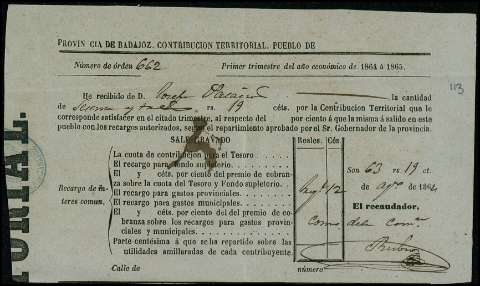 PROVINCIA DE BADAJOZ. CONTRIBUCION TERRITORIAL. PUEBLO DE
Número de órden 662 Primer trimestre del año económico de 1864 á 1865.
113
He recibido de D. José la cantidad
de rs. 19 cénts. por la Contribucion Territorial que le
corresponde satisfacer en el citado trimestre, al respecto del por ciento á que la misma á salido en este
pueblo con los recargos autorizados, segun el repartimiento aprobado por el Sr. Gobernador de la provincia.
SALE GRAVADO
Reales. Cés
La cuota de contribucion para el Tesoro
El recargo para fondo supletorio.
El y céts. por ciento del premio de cobranza sobre la cuota del Tesoro y Fondo supletorio.
Recargo de interes comun.
El recargo para gastos provinciales.
El recargo para gastos municipales.
El y céts. por ciento del premio de cobranza sobre los recargos para gastos provinciales y municipales.
Parte centésima á que se ha repartido sobre las
utilidades amillaradas de cada contribuyente.
Son 63 rs. 19 ct.
de Ag.to de 1864
El recaudador,
Rubio
Calle de número
TORIAL.